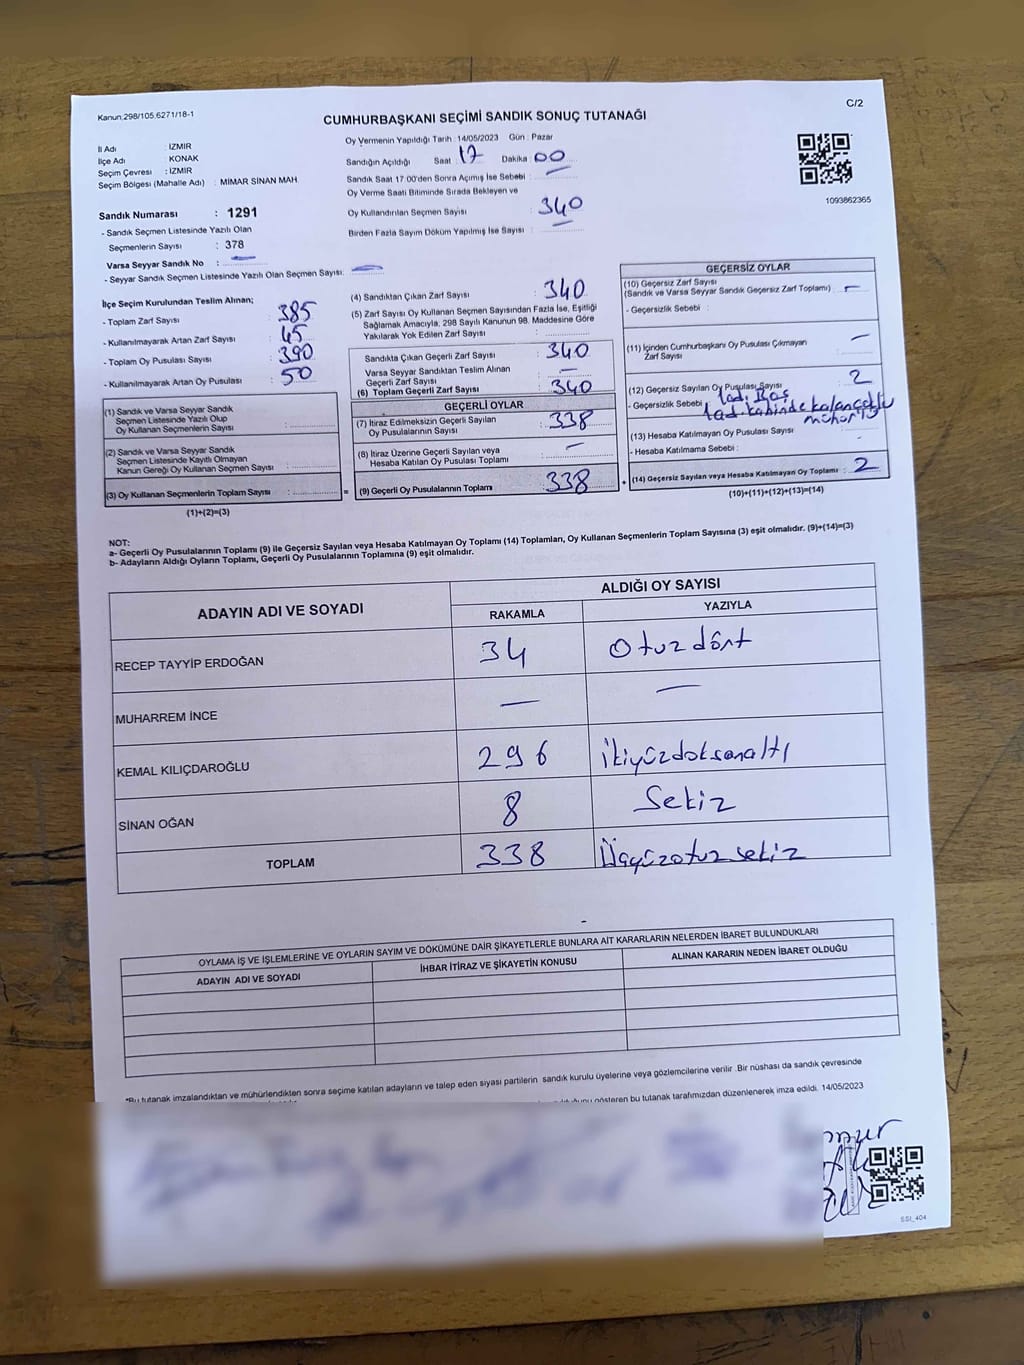 Kanun:298/105.6271/18-1
C/2
CUMHURBAŞKANI SEÇİMİ SANDIK SONUÇ TUTANAĞI
İl Adı : İZMİR
İlçe Adı : KONAK
Seçim Çevresi : İZMİR
Seçim Bölgesi (Mahalle Adı) : MİMAR SİNAN MAH
Sandık Numarası : 1291
- Sandık Seçmen Listesinde Yazılı Olan
Seçmenlerin Sayısı : 378
Varsa Seyyar Sandık No : —
- Seyyar Sandık Seçmen Listesinde Yazılı Olan Seçmen Sayısı: —
Oy Vermenin Yapıldığı Tarih : 14/05/2023 Gün : Pazar
Sandığın Açıldığı Saat 17 Dakika : 00
Sandık Saat 17.00'den Sonra Açımış İse Sebebi : —
Oy Verme Saati Bitiminde Sırada Bekleyen ve
Oy Kullandırılan Seçmen Sayısı : 340
Birden Fazla Sayım Döküm Yapılmış İse Sayısı : —
1093862365
İlçe Seçim Kurulundan Teslim Alınan;
- Toplam Zarf Sayısı : 385
- Kullanılmayarak Artan Zarf Sayısı : 45
- Toplam Oy Pusulası Sayısı : 390
- Kullanılmayarak Artan Oy Pusulası : 50
(1) Sandık ve Varsa Seyyar Sandık
Seçmen Listesinde Yazılı Olup
Oy Kullanan Seçmenlerin Sayısı :
(2) Sandık ve Varsa Seyyar Sandık
Seçmen Listesinde Kayıtlı Olmayan
Kanun Gereği Oy Kullanan Seçmen Sayısı :
(3) Oy Kullanan Seçmenlerin Toplam Sayısı : =
(1)+(2)=(3)
(4) Sandıktan Çıkan Zarf Sayısı : 340
(5) Zarf Sayısı Oy Kullanan Seçmen Sayısından Fazla İse, Eşitliği
Sağlamak Amacıyla, 298 Sayılı Kanunun 98. Maddesine Göre
Yakılarak Yok Edilen Zarf Sayısı :
Sandıkta Çıkan Geçerli Zarf Sayısı : 340
Varsa Seyyar Sandıktan Teslim Alınan
Geçerli Zarf Sayısı : —
(6) Toplam Geçerli Zarf Sayısı : 340
GEÇERLİ OYLAR
(7) İtiraz Edilmeksizin Geçerli Sayılan
Oy Pusulalarının Sayısı : 338
(8) İtiraz Üzerine Geçerli Sayılan veya
Hesaba Katılan Oy Pusulası Toplamı : —
(9) Geçerli Oy Pusulalarının Toplamı : 338 +
GEÇERSİZ OYLAR
(10) Geçersiz Zarf Sayısı
(Sandık ve Varsa Seyyar Sandık Geçersiz Zarf Toplamı) : —
- Geçersizlik Sebebi :
(11) İçinden Cumhurbaşkanı Oy Pusulası Çıkmayan
Zarf Sayısı : —
(12) Geçersiz Sayılan Oy Pusulası Sayısı : 2
- Geçersizlik Sebebi 1ad. Boş
1ad. kabinde kalan
mühür
(13) Hesaba Katılmayan Oy Pusulası Sayısı : -
- Hesaba Katılmama Sebebi :
(14) Geçersiz Sayılan veya Hesaba Katılmayan Oy Toplamı : 2
(10)+(11)+(12)+(13)=(14)
NOT:
a- Geçerli Oy Pusulalarının Toplamı (9) ile Geçersiz Sayılan veya Hesaba Katılmayan Oy Toplamı (14) Toplamları, Oy Kullanan Seçmenlerin Toplam Sayısına (3) eşit olmalıdır. (9)+(14)=(3)
b- Adayların Aldığı Oyların Toplamı, Geçerli Oy Pusulalarının Toplamına (9) eşit olmalıdır.
ADAYIN ADI VE SOYADI
ALDIĞI OY SAYISI
RAKAMLA YAZIYLA
RECEP TAYYİP ERDOĞAN 34 Otuzdört
MUHARREM İNCE — —
KEMAL KILIÇDAROĞLU 296 İkiyüzdoksanaltı
SİNAN OĞAN 8 Sekiz
TOPLAM 338 Üçyüzotuzsekiz
OYLAMA İŞ VE İŞLEMLERİNE VE OYLARIN SAYIM VE DÖKÜMÜNE DAİR ŞİKAYETLERLE BUNLARA AİT KARARLARIN NELERDEN İBARET BULUNDUKLARI
ADAYIN ADI VE SOYADI İHBAR İTİRAZ VE ŞİKAYETİN KONUSU ALINAN KARARIN NEDEN İBARET OLDUĞU
*Bu tutanak imzalandıktan ve mühürlendikten sonra seçime katılan adayların ve talep eden siyasi partilerin sandık kurulu üyelerine veya gözlemcilerine verilir .Bir nüshası da sandık çevresinde
gösteren bu tutanak tarafımızdan düzenlenerek imza edildi. 14/05/2023
SSI_404